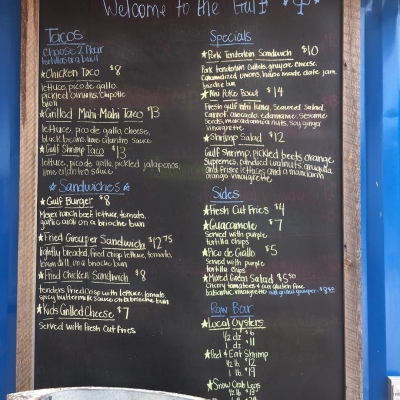 Welcome to the Gulf
Tacos
choose 2 flour
tortillas or a bowl
★Chicken Taco $8
lettuce, pico de gallo,
pickled onions, chipotle
aioli
★Grilled Mahi Mahi Taco $13
lettuce, pico de gallo, cheese,
black beans, lime cilantro sauce
★Gulf Shrimp Taco $13
lettuce, pico de gallo, pickled jalapeños,
lime cilantro sauce
★ Sandwiches ★
★Gulf Burger $8
Meyer ranch beef, lettuce, tomato,
garlic aioli on a brioche bun
★Fried Grouper Sandwich $12.75
lightly breaded, fried crisp lettuce, tomato,
on a brioche bun
★Fried Chicken Sandwich $8
tenders fried crisp with lettuce, tomato,
spicy buttermilk sauce on a brioche bun
★Kids Grilled Cheese $7
Served with fresh cut fries
Specials
★Pork Tenderloin Sandwich $10
Pork tenderloin cutlets, gruyere cheese,
Caramelized onions, house made date jam,
brioche bun
★Ahi Poke Bowl $14
Fresh gulf ahi tuna, seaweed salad,
carrot, avocado, edamame, sesame
seeds, macadamia nuts, soy ginger
vinaigrette
★Shrimp Salad $12
Gulf shrimp, pickled beets, orange
Supremes, candied walnuts, arugula
and frisee lettuces and a mandarin
orange vinaigrette
Sides
★Fresh Cut Fries $4
★Guacamole $7
Served with purple
tortilla chips
★Pico de Gallo $5
Served with purple
tortilla chips
★Mixed Green Salad $5.50
cherry tomatoes + cucumber
balsamic vinaigrette
Raw Bar
★Local Oysters
1/2 dz $6
1 dz $11
★Peel & Eat Shrimp
1/2 lb $12
1 lb $19
★Snow Crab Legs
1/2 lb $13